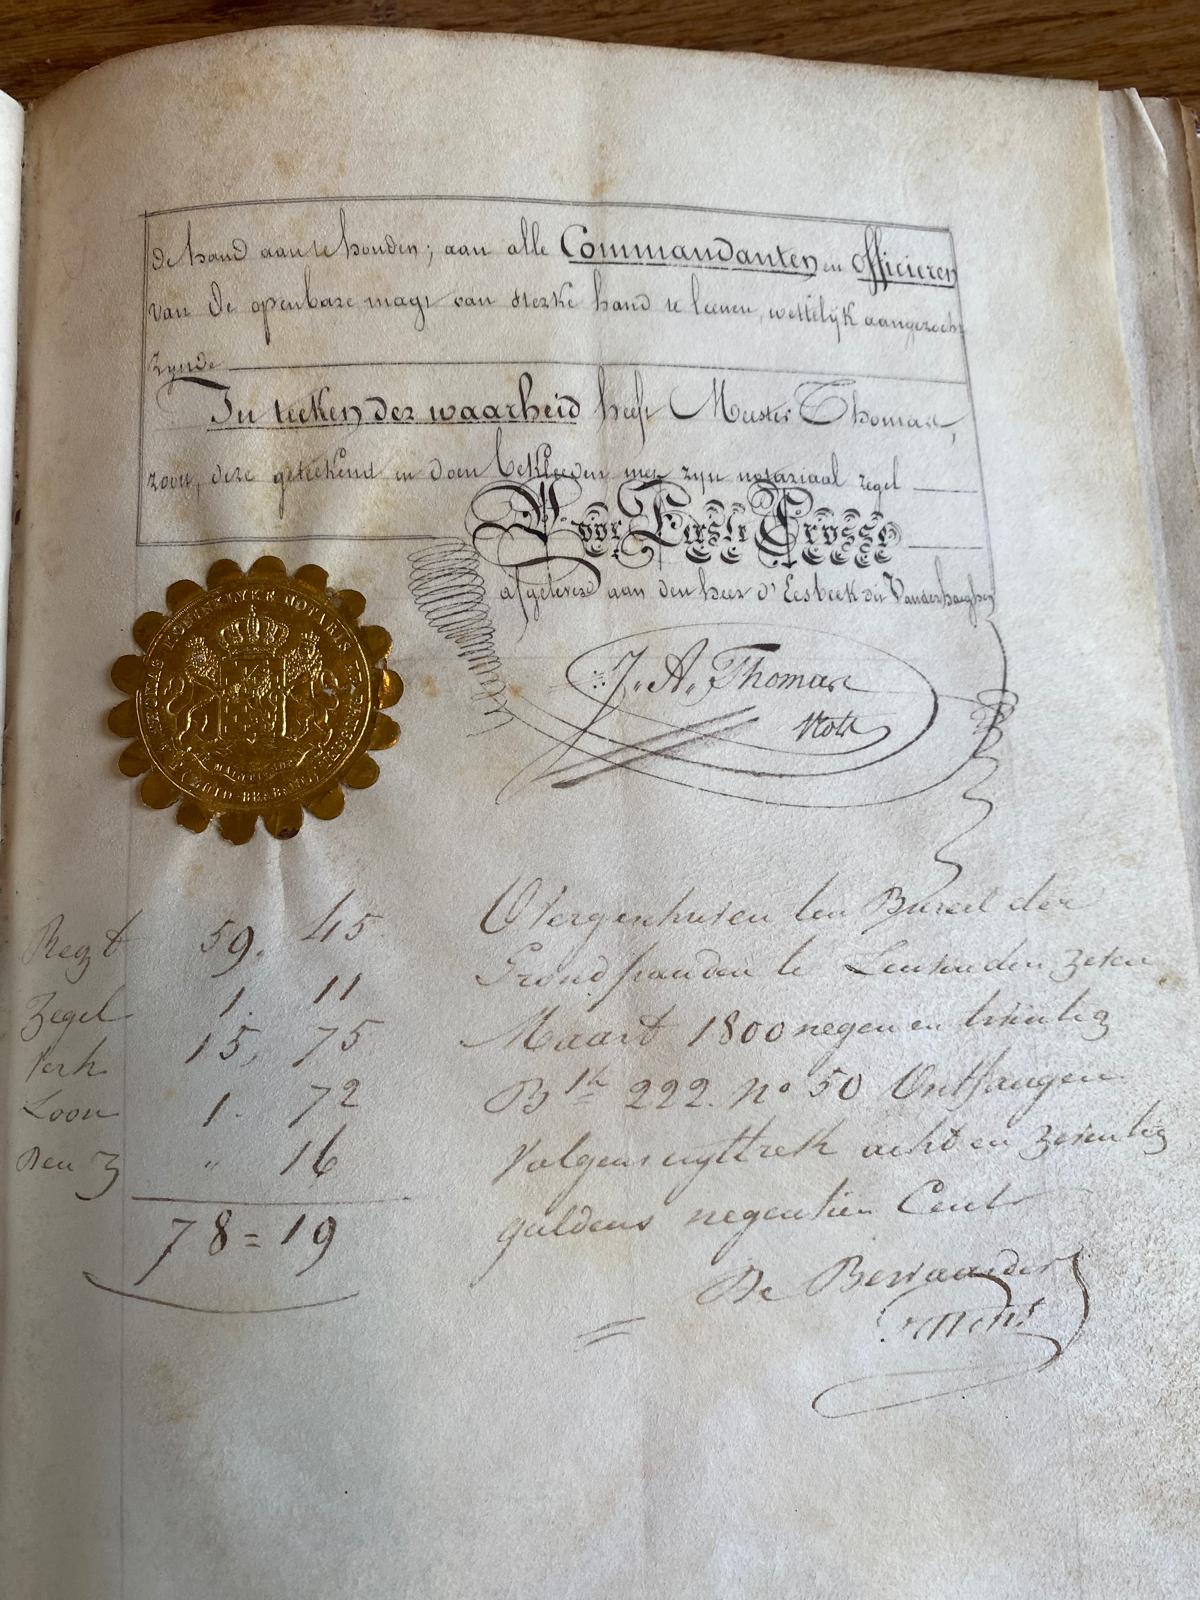 de hand aan te houden; aan alle Commandanten en Officieren
van de openbare magt van sterke hand te leenen, wettelijk aangezocht
zynde
In teeken der waarheid heeft Meester Thomas,
zoon, deze geteekend en doen bekleeden met zyn notariaal zegel
Voor Eerste Grosse
afgeleverd aan den heer d'Eesbeek dit Vanderhaeghen
J. A. Thomas
Nots
KONINKLYKE NOTARIS
ZUID-BRABAND
Regt 59. 45
Zegel 1. 11
Verh 15, 75
Loon 1. 72
Den Z " 16
78=19
Overgeschreven ten Bureel der
Grondpanden te Leuven den zeven
Maart 1800 negen en twintig
Bk 222. no 50 Ontfangen
Volgens uyttrek acht en zeventig
guldens negentien Cents
De Bewaarder